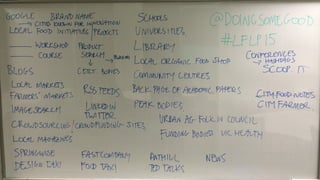 GOOGLE BRAND NAME
LOCAL FOOD INITIATIVE / PROJECTS
____ WORKSHOP
____ COURSE
PRODUCT
SEARCH
BLOGS
LOCAL MARKETS
FARMERS' MARKETS
IMAGE SEARCH
CROWDSOURCING / CROWDFUNDING SITES
LOCAL MAGAZINES
SPRINGWISE
DESIGN TAXI
RSS FEEDS
LINKEDIN
TWITTER
FASTCOMPANY
FOOD TAXI
SCHOOLS
UNIVERSITIES
LIBRARY
LOCAL ORGANIC FOOD SHOP
COMMUNITY CENTRES
BACK PAGE OF ACADEMIC PAPERS
PEAK BODIES
URBAN AG FOLK IN COUNCIL
FUNDING BODIES VIC HEALTH
ANTHILL
TED TALKS
NEWS
@DOINGSOMEGOOD
#LFLP15
CONFERENCES
HASHTAGS
SCOOP IT
CITY FOOD NOTES
CITY FARMER